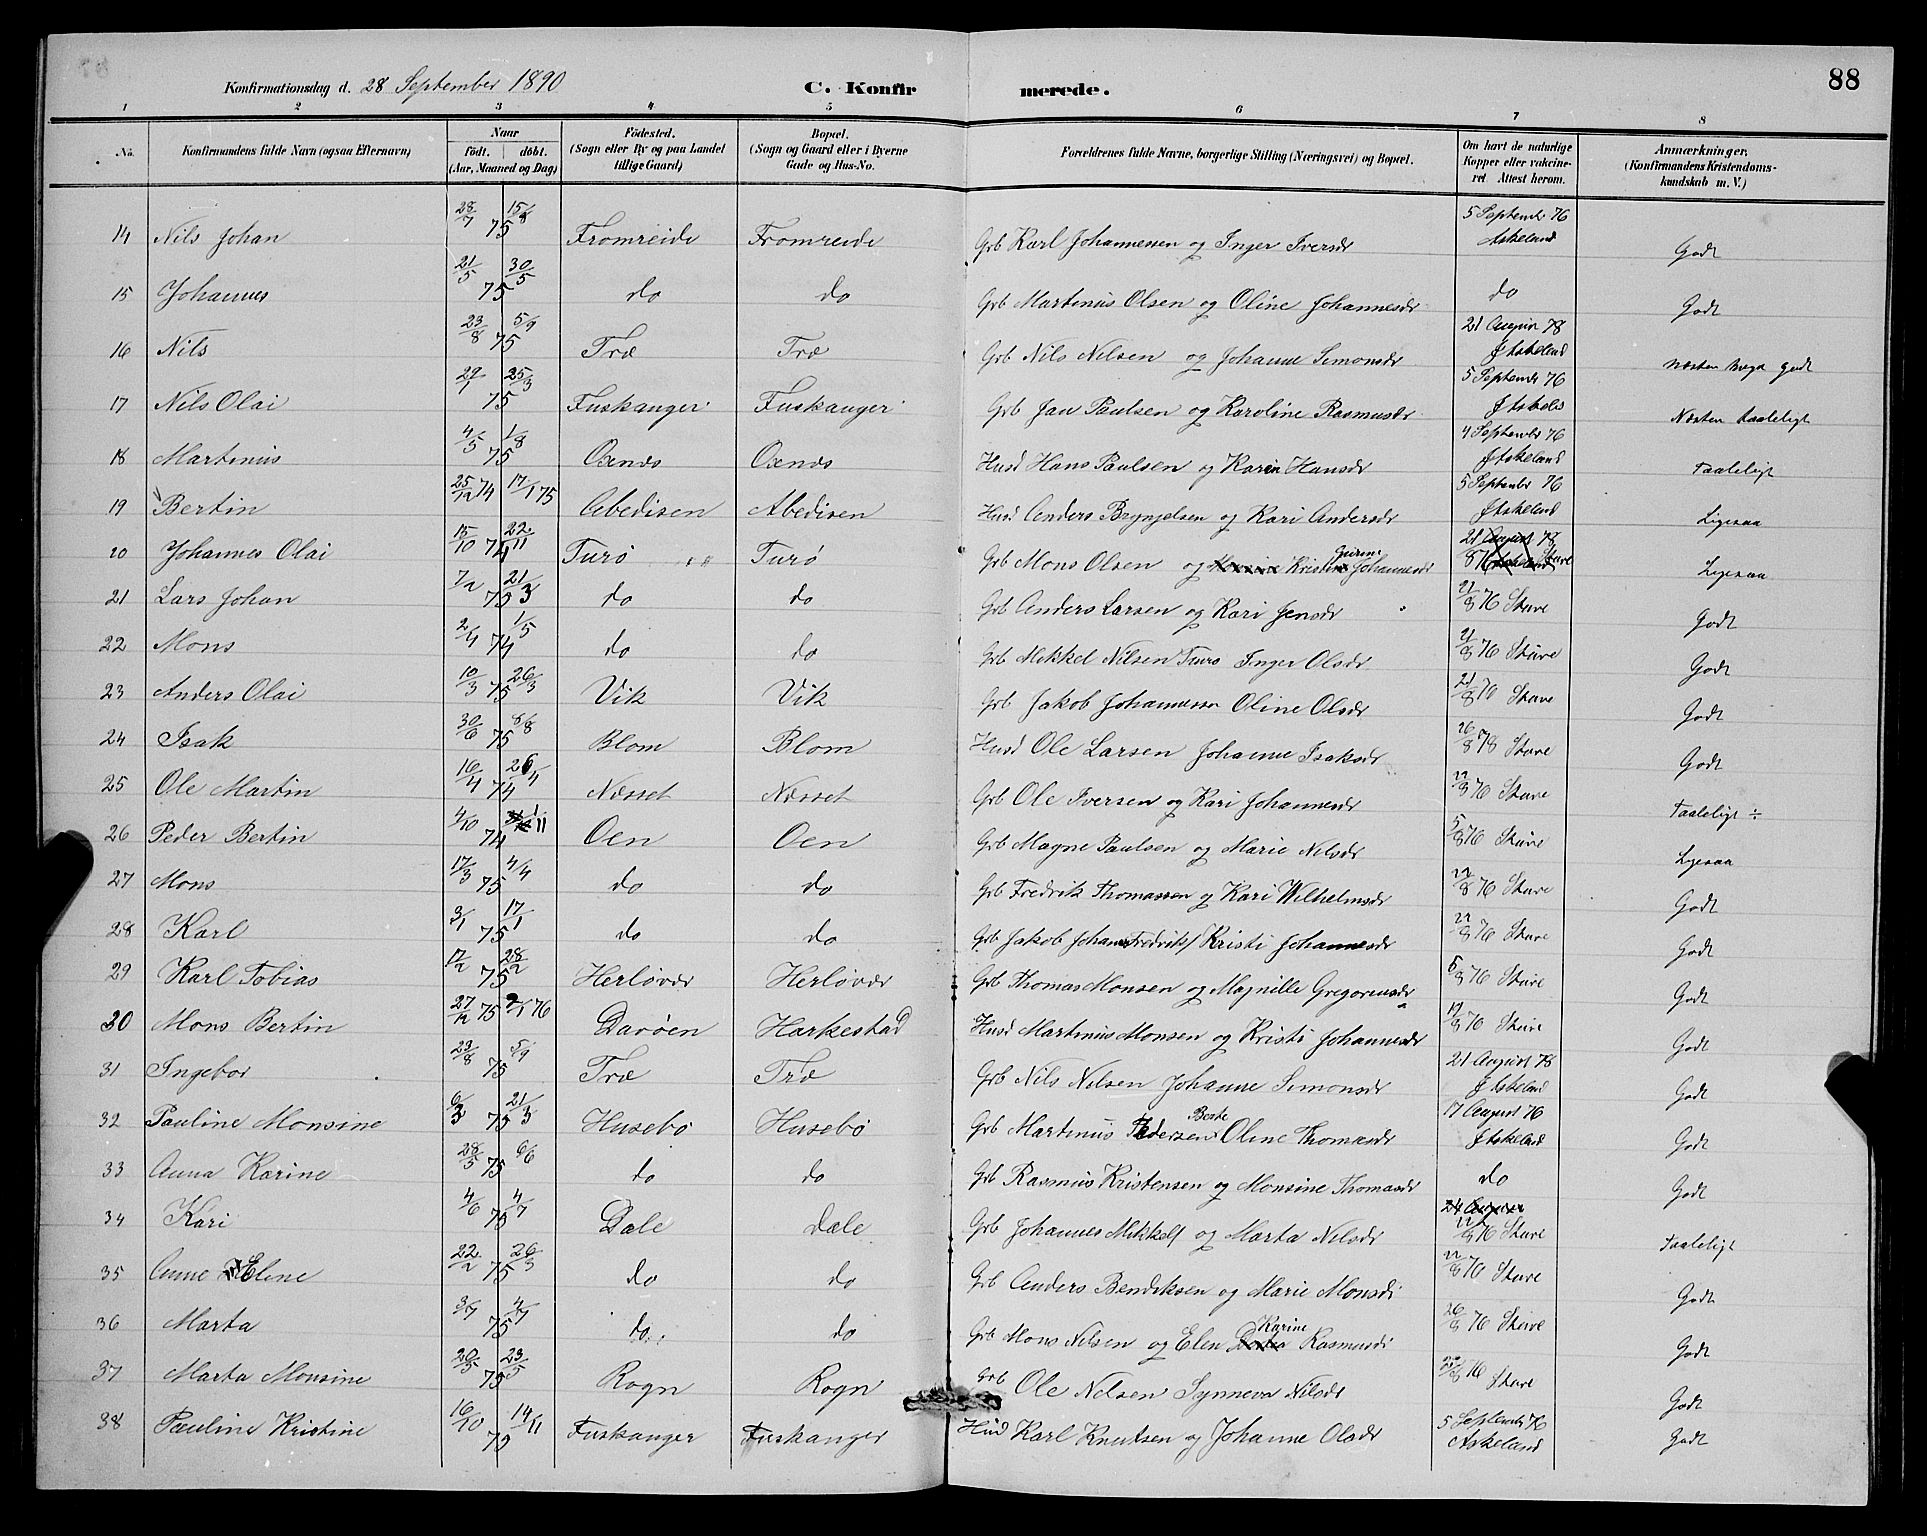 Konfirmationsdag d. 28 September 1890 C. Konfir merede. 88
1 2 3 4 5 6 7 8
No. Konfirmandens fulde Navn (ogsaa Efternavn) Naar födt. döbt. (Aar, Maaned og Dag) Födested. (Sogn eller By og paa Landet tillige Gaard) Bopæl. (Sogn og Gaard eller i Byerne Gade og Hus-No. Forældrenes fulde Navne, borgerlige Stilling (Næringsvei) og Bopæl. Om havt de naturlige Kopper eller vakcineret Attest herom. Anmærkninger. (Konfirmandens Kristendomskundskab m. V.)
14 Nils Johan 28/7 75 15/8 Fromreide Fromreide Grb Karl Johannessen og Inger Iversdr 5 September 76 Askeland Godt
15 Johannes 21/5 75 30/5 do do Grb Martinus Olsen og Oline Johannesdr do Godt
16 Nils 23/8 75 5/9 Træ Træ Grb Nils Nilsen og Johanne Simonsdr 21 August 78 J Askeland Næsten meget godt
17 Nils Olai 75 25/3 Fuskanger Fuskanger Grb Jan Paulsen og Karoline Rasmusdr 5 September 76 Næsten taaleligt
18 Martinus 4/5 75 1/8 Oxnæs Oxnæs Husd Hans Paulsen og Karin Hansdr 4 September 76 J Askeland Taaleligt
19 Bertin 25/12 74 17/1 75 Abedisen Abedisen Husd Anders Brynjelsen og Kari Andersdr 5 September 76 J Askeland Ligesaa
20 Johannes Olai 15/10 74 22/11 Turö Turö Grb Mons Olsen og Kristine Gurine Johannesdr 21 August 78 Stave Ligesaa
21 Lars Johan 7/2 75 21/3 do do Grb Anders Larsen og Kari Jensdr 21/8 76 Stave Godt
22 Mons 2/4 74 1/5 do do Grb Mikkel Nilsen Turö Inger Olsdr 21/8 76 Stave Godt
23 Anders Olai 10/3 75 26/3 Vik Vik Grb Jakob Johannessen Oline Olsdr 21/8 76 Stave Godt
24 Isak 30/6 75 8/8 Blom Blom Husd Ole Larsen Johanne Isaksdr 26/8 78 Stave Godt
25 Ole Martin 16/4 74 26/4 Næsset Næsset Grb Ole Iversen og Kari Johannesdr 22/8 76 Stave Taaleligt ÷
26 Peder Bertin 4/10 74 Oen Oen Grb Magne Paulsen og Marie Nilsdr 5/8 76 Stave Ligesaa
27 Mons 17/3 75 4/4 do do Grb Fredrik Thomassen og Kari Wilhelmsdr 22/8 76 Stave Godt
28 Karl 3/1 75 17/1 do do Grb Jakob Johan Fredriks/ Kristi Johannesdr 22/8 76 Stave Godt
29 Karl Tobias 17/2 75 28/2 Herløvær Herløvær Grb Thomas Monsen og Magnille Gregoriusdr 5/8 76 Stave Godt
30 Mons Bertin 27/12 75 2/1 76 Davöen Harkestad Husd Martinus Monsen og Kristi Johannesdr 17/8 76 Stave Godt
31 Ingebor 23/8 75 5/9 Træ Træ Grb Nils Nilsen Johanne Simonsdr 21 August 78 J Askeland Godt
32 Pauline Monsine 6/3 75 21/3 Husebö Husebö Grb Martinus Pedersen Berte Oline Thomasdr 17 August 76 J Askeland Godt
33 Anna Karine 28/5 75 6/6 do do Grb Rasmus Kristensen og Monsine Thomasdr do Godt
34 Kari 4/6 75 4/7 Dale Dale Grb Johannes Mikkels/ og Marta Nilsdr 22/8 76 Stave Taaleligt
35 Anne Eline 22/2 75 26/3 do do Grb Anders Bendiksen og Marie Monsdr 22/8 76 Stave Godt
36 Marta 3/7 75 4/7 do do Grb Mons Nilsen og Elen Karine Rasmusdr 26/8 76 Stave Godt
37 Marta Monsine 20/5 75 23/5 Rogn Rogn Grb Ole Nilsen Synneva Nilsdr 22/8 76 Stave Godt
38 Pauline Kristine 16/10 75 14/11 Fuskanger Fuskanger Husd Karl Knutsen og Johanne Olsdr 5 September 76 Askeland Godt